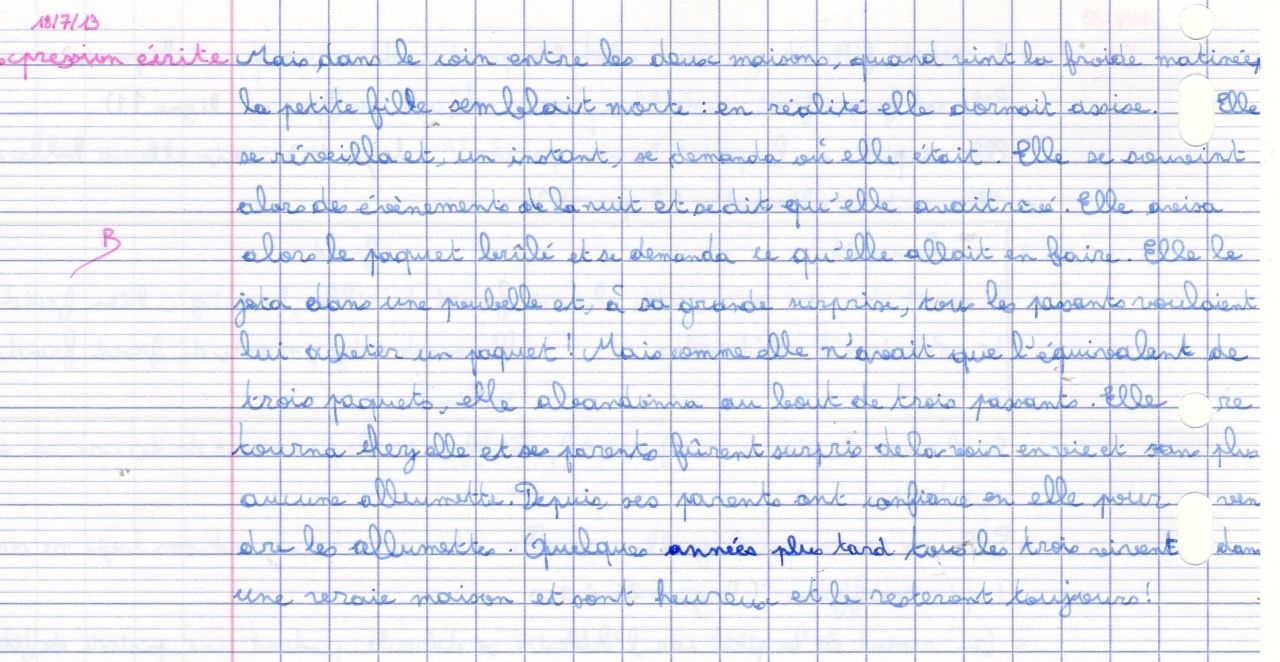 18/7/13
expression écrite Mais dans le coin entre les deux maisons, quand vint la froide matinée,
la petite fille semblait morte : en réalité elle dormait assise. Elle
se réveilla et, un instant, se demanda où elle était. Elle se souvint
alors des évènements de la nuit et se dit qu'elle avait rêvé. Elle avisa
B alors le paquet brûlé et se demanda ce qu'elle allait en faire. Elle le
jeta dans une poubelle et, à sa grande surprise, tous les passants voulaient
lui acheter un paquet ! Mais comme elle n'avait que l'équivalent de
trois paquets, elle abandonna au bout de trois passants. Elle re
tourna chez elle et ses parents fûrent surpris de la voir en vie et sans plus
aucune allumette. Depuis, ses parents ont confiance en elle pour ven
dre les allumettes. Quelques années plus tard tous les trois vivent dans
une vraie maison et sont heureux et le resteront toujours !